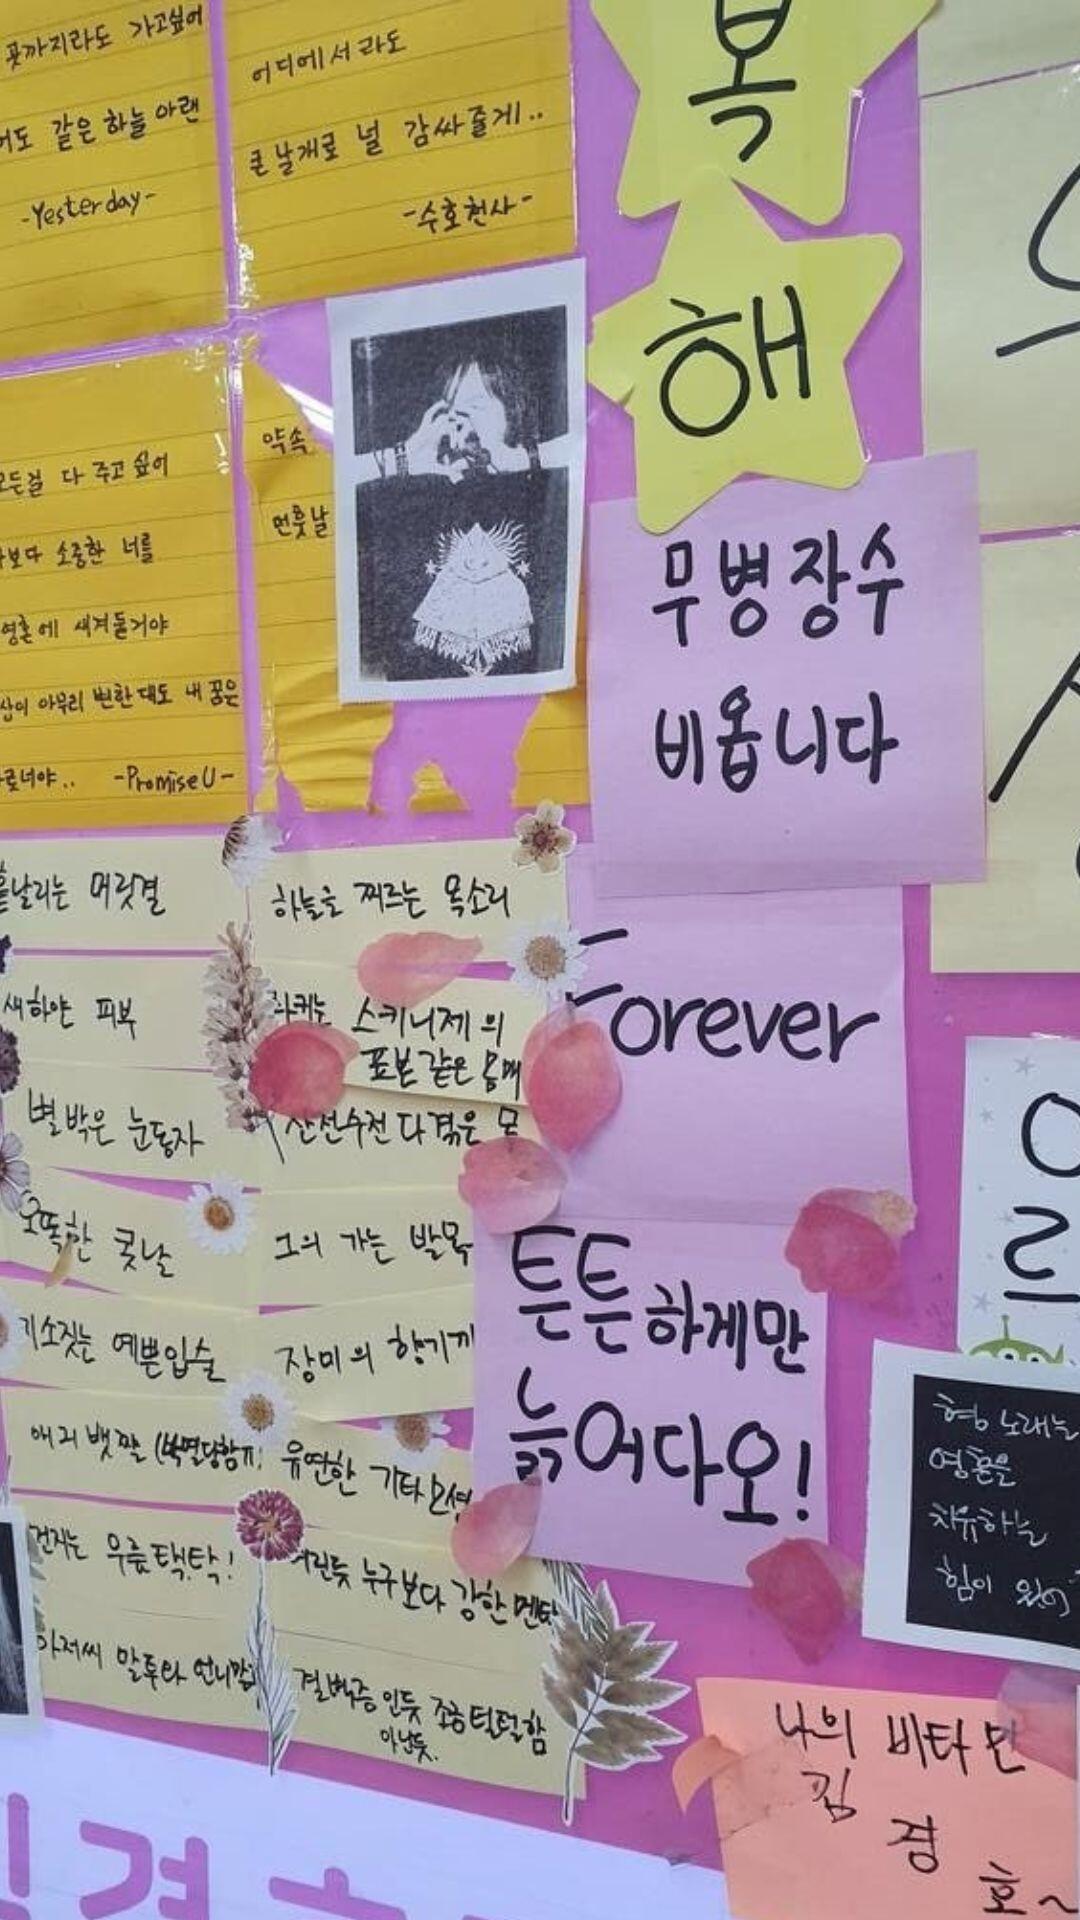 곳까지라도 가고싶어
같은 하늘 아랜
-Yesterday-
어디에서라도
큰 날개로 널 감싸줄게..
-수호천사-
복
해
모든걸 다 주고 싶어
보다 소중한 너를
영혼에 새겨둘거야
아무리 변한대도 내 꿈은
-Promise U-
약속
먼훗날
무병장수
비옵니다
Forever
튼튼하게만
늙어다오!
흩날리는 머릿결
새하얀 피부
별 박은 눈동자
오똑한 콧날
미소짓는 예쁜입술
건치는 우윳탁.탁!
아저씨 말투와 언니
하늘을 찌르는 목소리
스키니제의
표본같은 몸매
산전수전 다 겪은
그의 가는 발목
장미의 향기
유연한 기타
누구보다 강한 멘탈
결벽증인듯 조금 털털함
아닌듯.
으
르
형 노래는
영혼을
치유하는
힘이 있어
나의 비타민
김
경
호~